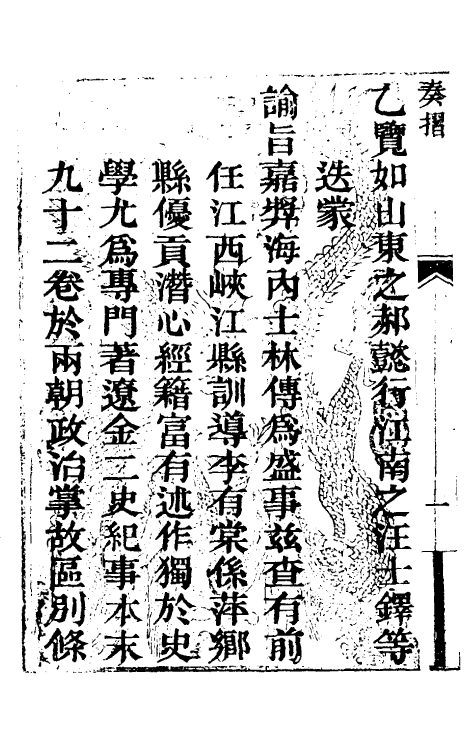 奏摺
乙覽如山東之郝懿行江南之汪士鐸等
迭蒙
諭旨嘉獎海內士林傳爲盛事茲查有前
任江西峽江縣訓導李有棠係萍鄉
縣優貢潛心經籍富有述作獨於史
學尤爲專門著遼金二史紀事本末
九十二卷於兩朝政治掌故區別條
一